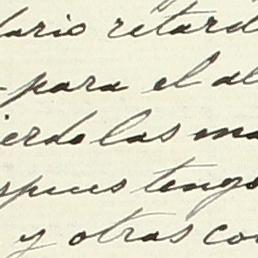 dario retard
-para el al
ierdo las ma
spues tengo
y otras co